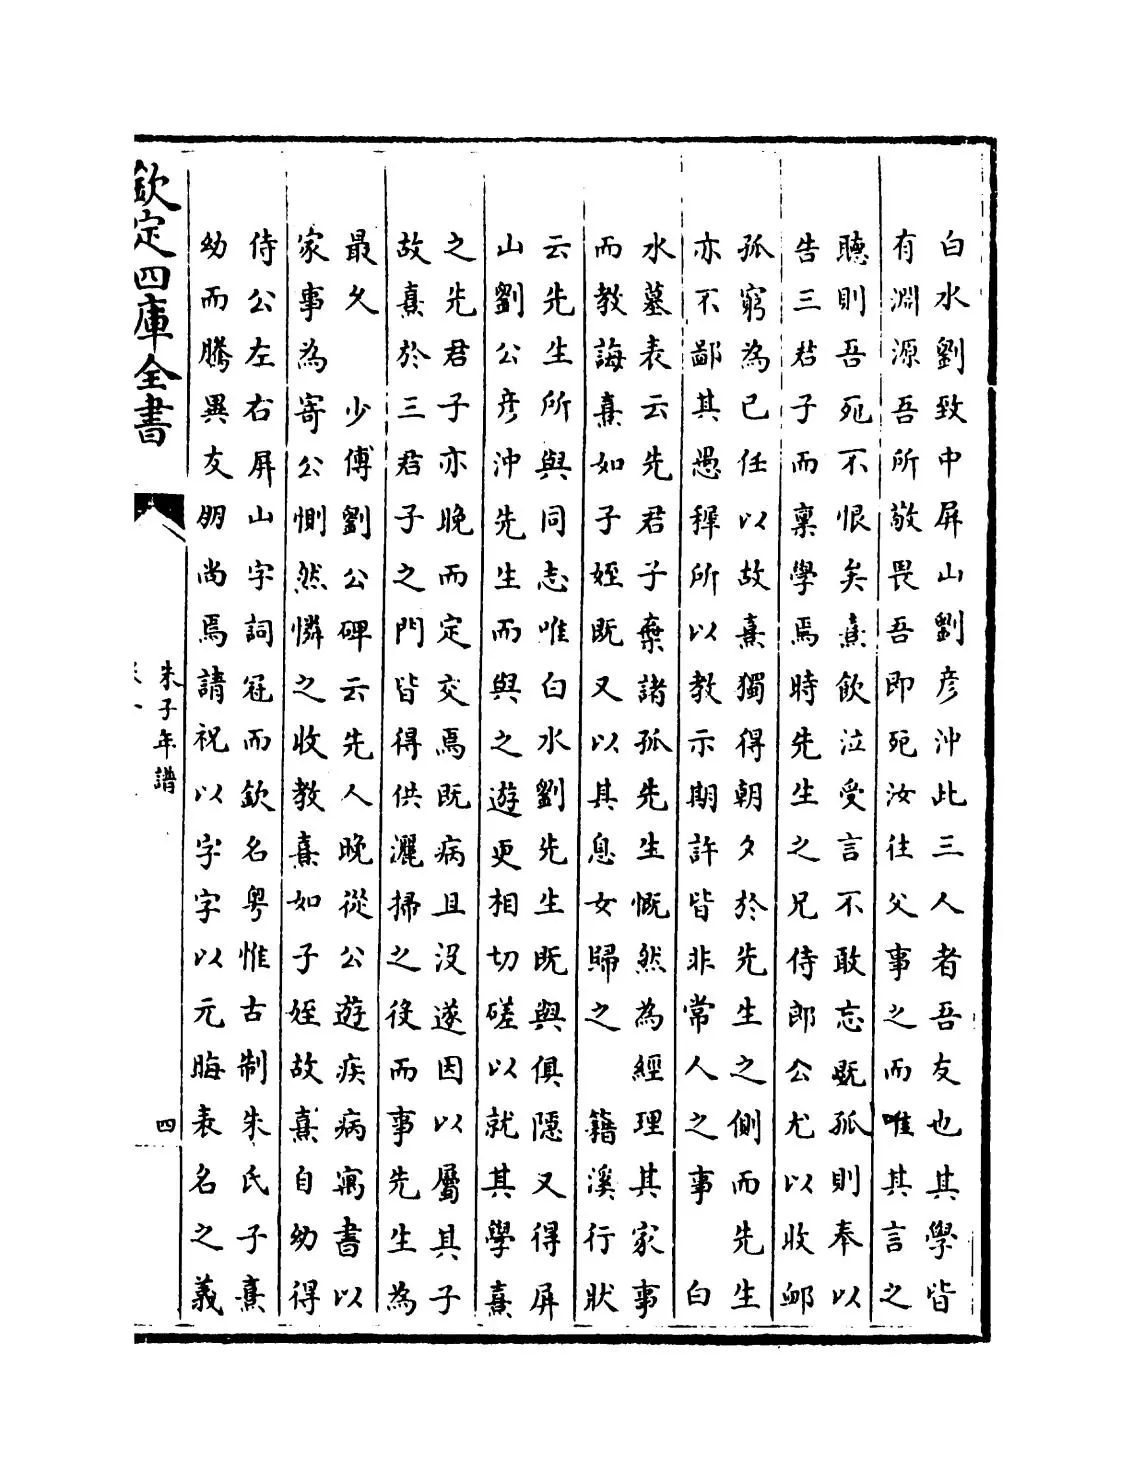 白水劉致中屏山劉彦沖此三人者吾友也其學皆
有淵源吾所敬畏吾即死汝往父事之而唯其言之
聽則吾死不恨矣熹飲泣受言不敢忘既孤則奉以
告三君子而稟學焉時先生之兄侍郎公尤以收䘏
孤窮為已任以故熹獨得朝夕於先生之側而先生
亦不鄙其愚穉所以教示期許皆非常人之事　白
水墓表云先君子棄諸孤先生慨然為經理其家事
而教誨熹如子姪既又以其息女歸之　籍溪行狀
云先生所與同志唯白水劉先生既與俱隱又得屏
山劉公彦沖先生而與之遊更相切磋以就其學熹
之先君子亦晚而定交焉既病且沒遂因以屬其子
故熹於三君子之門皆得供灑掃之役而事先生為
最久　少傅劉公碑云先人晚從公遊疾病寓書以
家事為寄公惻然憐之收教熹如子姪故熹自幼得
侍公左右屏山字詞冠而欽名粤惟古制朱氏子熹
幼而騰異友朋尚焉請祝以字字以元晦表名之義
欽定四庫全書
朱子年譜
四